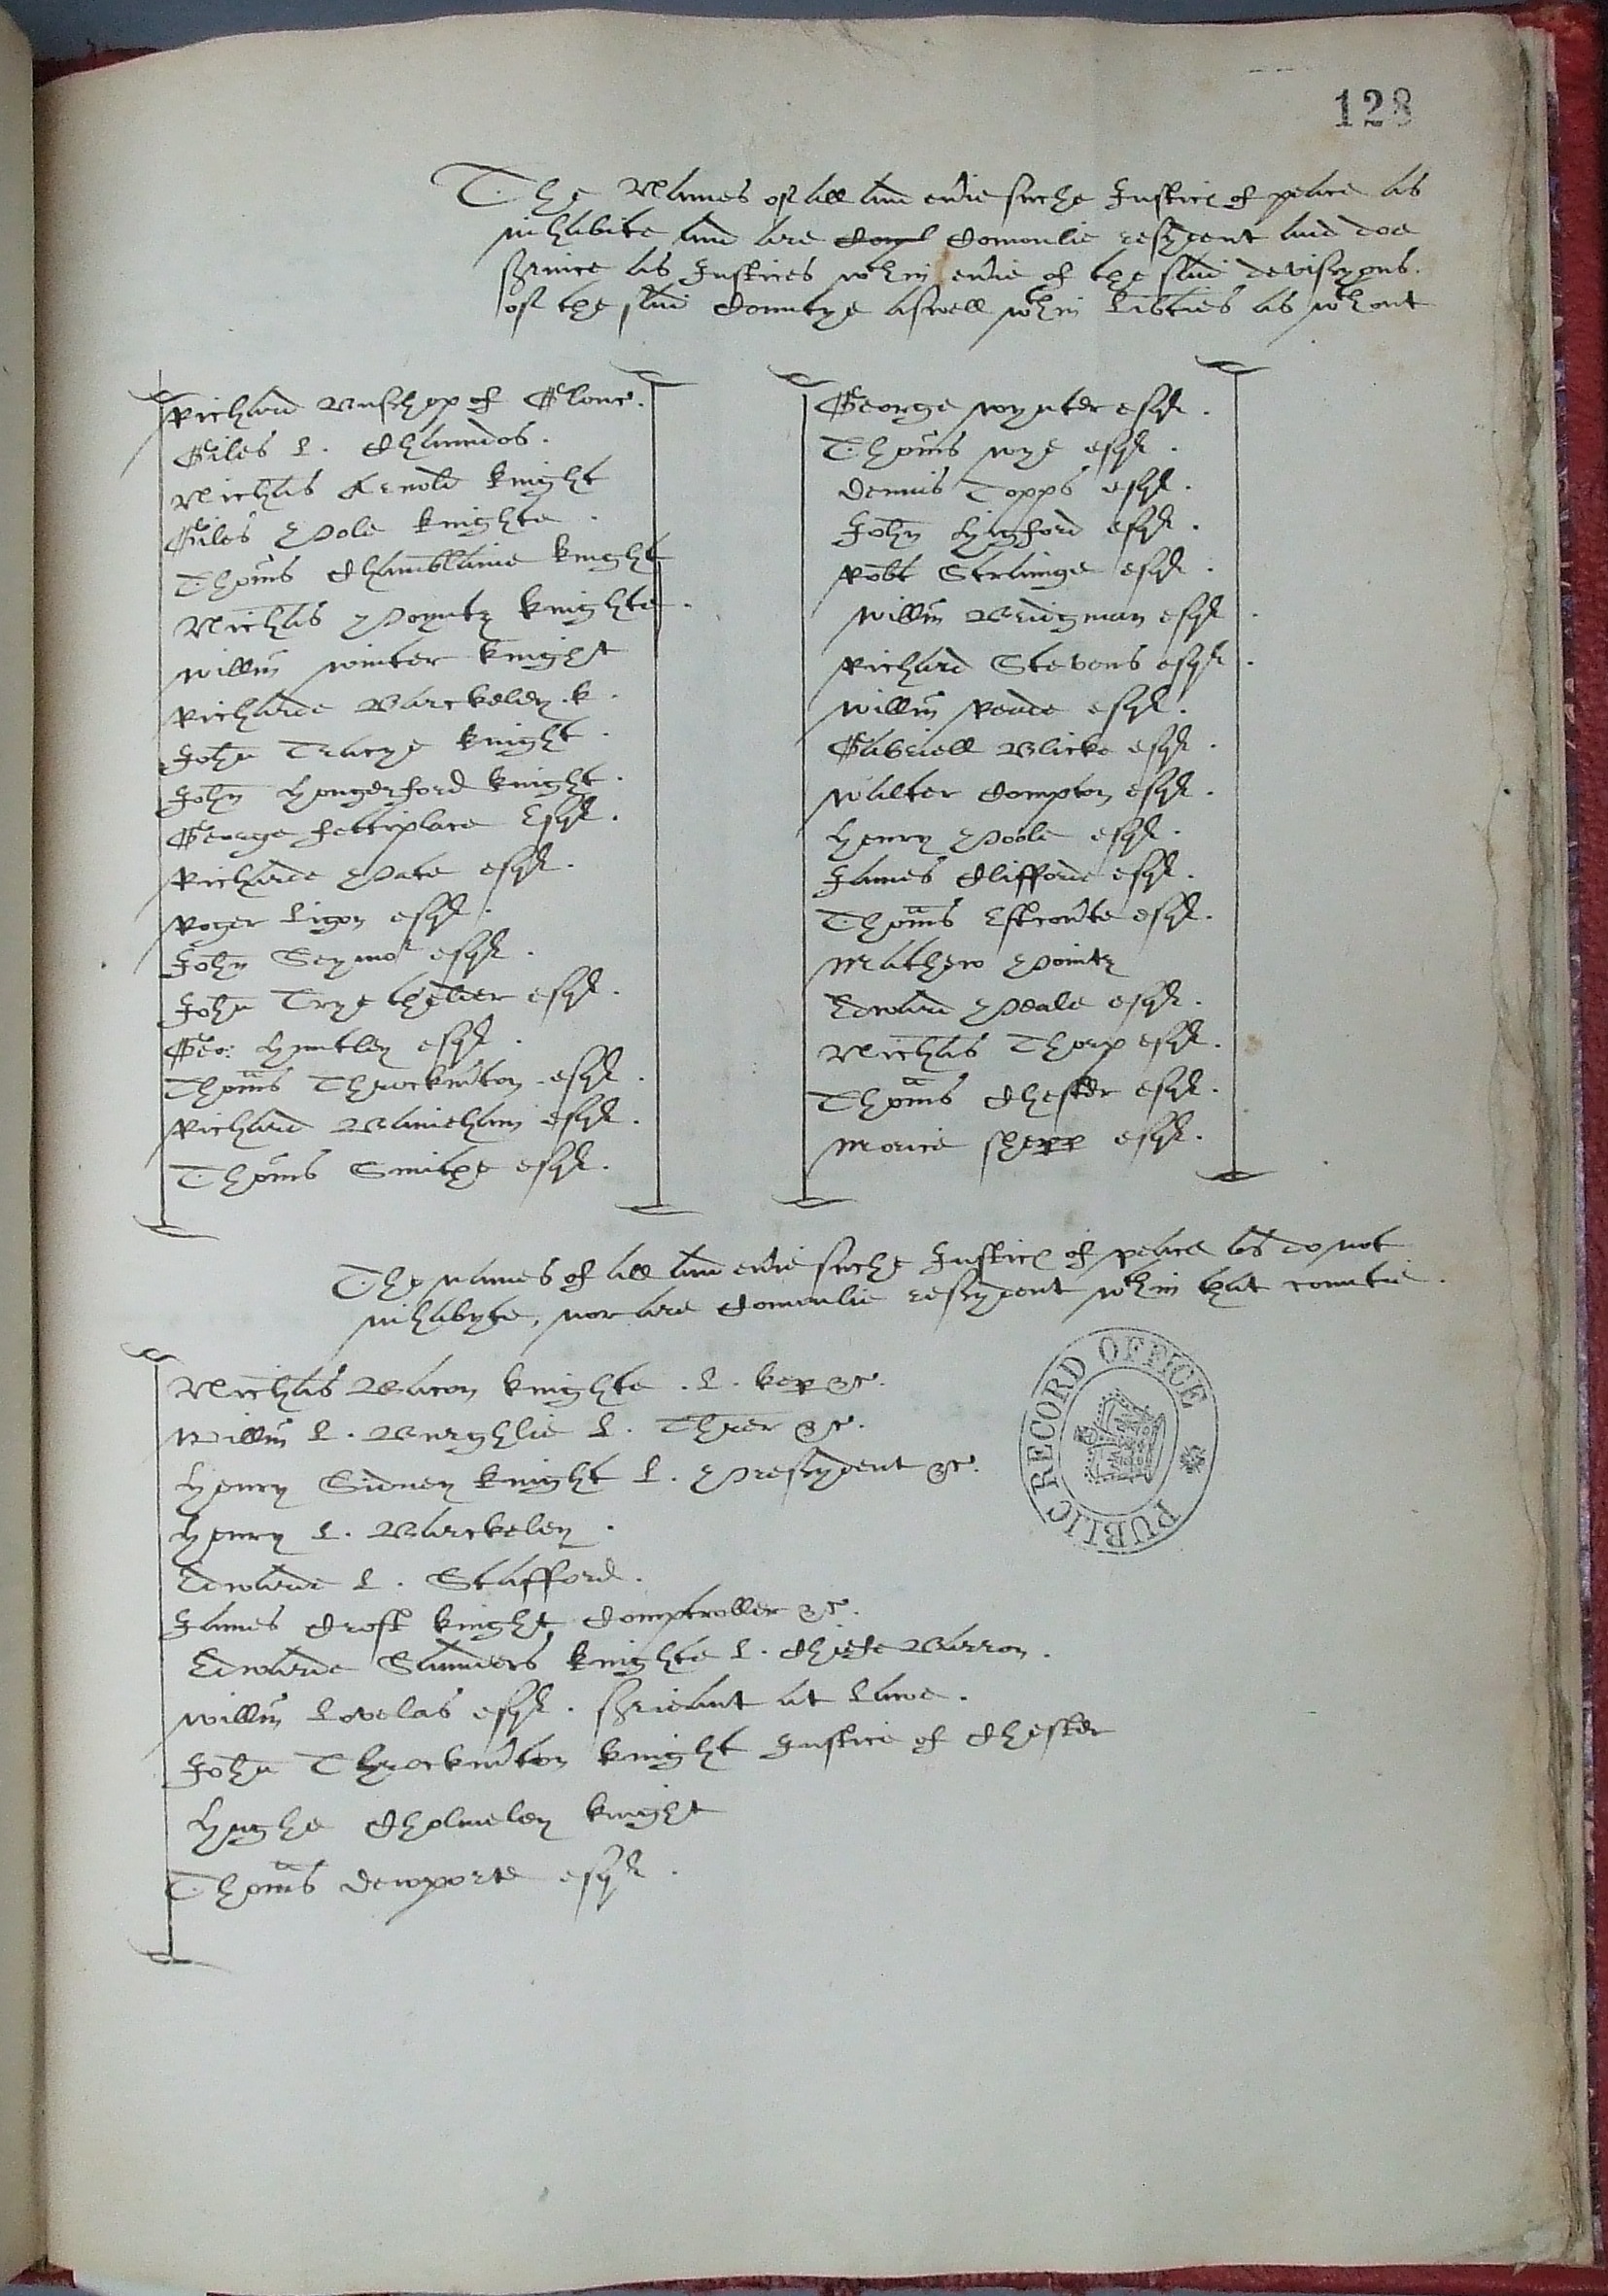 128
The Names of all and eu'ie suche Justic of peace as
inhabite and are Com'onlie resydent and doe
s'uice as Justices wthin eu'ie of the said devisyons
of the said Countye aswell wthin Lib'ties as wthout
Richard Busshop of Glouc'.
Giles L. Chaundos.
Nich'as Arnold knight
Giles Poole knighte.
Thom's Chamb'laine knight
Nich'as Poyntz knighte.
Will'm Winter knight
Richarde Barckeley. k.
John Tracye knight.
John Hongerford knight.
George Fettiplace Esqr.
Richarde Pate esqr.
Roger Ligon esqr.
John Seymor esqr.
John Trye thelder esqr.
Geo: Huntley esqr.
Thom's Throckm'ton esqr.
Richard Baineham esqr.
Thom's Smithe esqr.
George Wynter esqr.
Thom's Wye esqr.
Dennis Topps esqr.
John Higford esqr.
Rob't Straunge esqr.
Will'm Bridgman esqr.
Richard Stevens esqr.
Will'm Reade esqr.
Gabriell Blicke esqr.
Walter Compton esqr.
Henry Poole esqr.
James Clifforde esqr.
Thom's Estcourte esqr.
Mathew Pointz
Edward Veale esqr.
Nich'as Thorp esqr.
Thom's Chester esqr.
Morice esqr.
The names of all and eu'ie suche Justic of peace as do not
inhabyte, nor are Com'onlie resydent wthin that countie.
Nich'as Bacon knighte. L. kep &c.
Will'm L. Burghlie L. Threr &c.
Henry Sidney knight L. Presydent &c.
Henry L. Barckeley.
Edwarde L. Stafford.
James Croft knight Comptroller &c.
Edwarde Saunders knighte L. Chiefe Barron.
Will'm Lovelas esqr. s'rieant at Lawe.
John Throckm'ton knight Justice of Chester
Hughe Cholmeley knight
Thom's esqr.
PUBLIC RECORD OFFICE